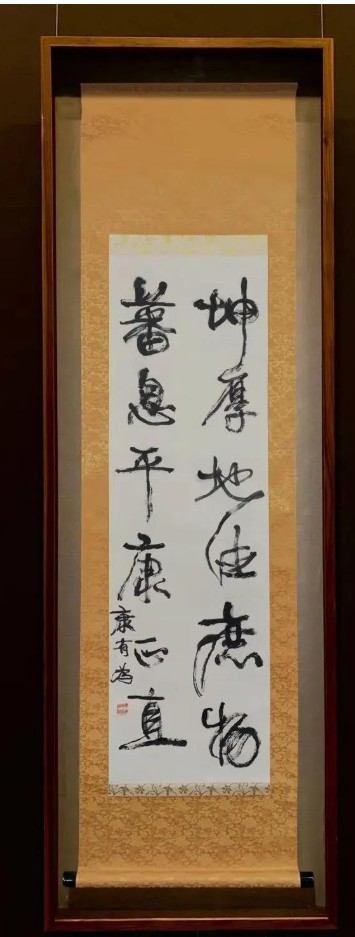 坤厚地庶物
蕃息平康正直
康有為